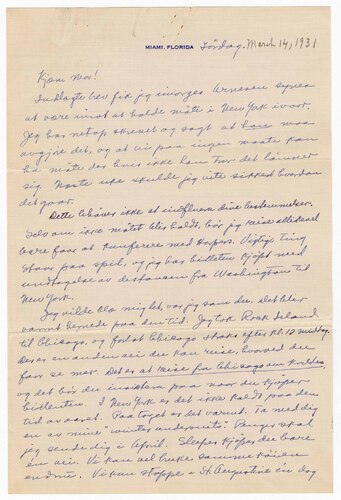 MIAMI, FLORIDA Lördag. March 14, 1931
Kjære mor!
Indlagte brev fik jeg imorges. Arnesen synes
at være imot at holde møte i New York i vaar.
Jeg har netop skrevet og sagt at han maa
avgjøre det, og at vi paa ingen maate kan
ha møte der hvis ikke han tror det lønner
sig. Næste uke skulde jeg vite sikkert hvordan
det gaar.
Dette behøver ikke at influere dine bestemmelser.
Selv om ikke møtet blir holdt, bør jeg reise allikevel
bare for at konferere med Kapers. Vigtige ting
staar paa spil, og jeg har billetten kjøpt med
undtagelse av distansen fra Washington til
New York.
Jeg vilde bli might, var jeg som du. Det blir
varmt hernede paa den tid. Jeg tok Rock Island
til Chicago, og forlot Chicago straks efter kl. 12 middag.
Der er en anden vei du kan reise, hvorved du
faar se mer. Det er at reise fra Chicago om kvelden,
og det bør du insistere paa naar du kjøper
billetten. I New York er det ikke kaldt paa den
tid av aaret. Paa toget er det varmt. Ta med dig
en av mine "winter underwaists". Penger skal
jeg sende dig i April. Sleeper kjøpes du bare
én vei. Vi kan vel bruke samme køien
endnu. Vi kan stoppe i St. Augustine én dag